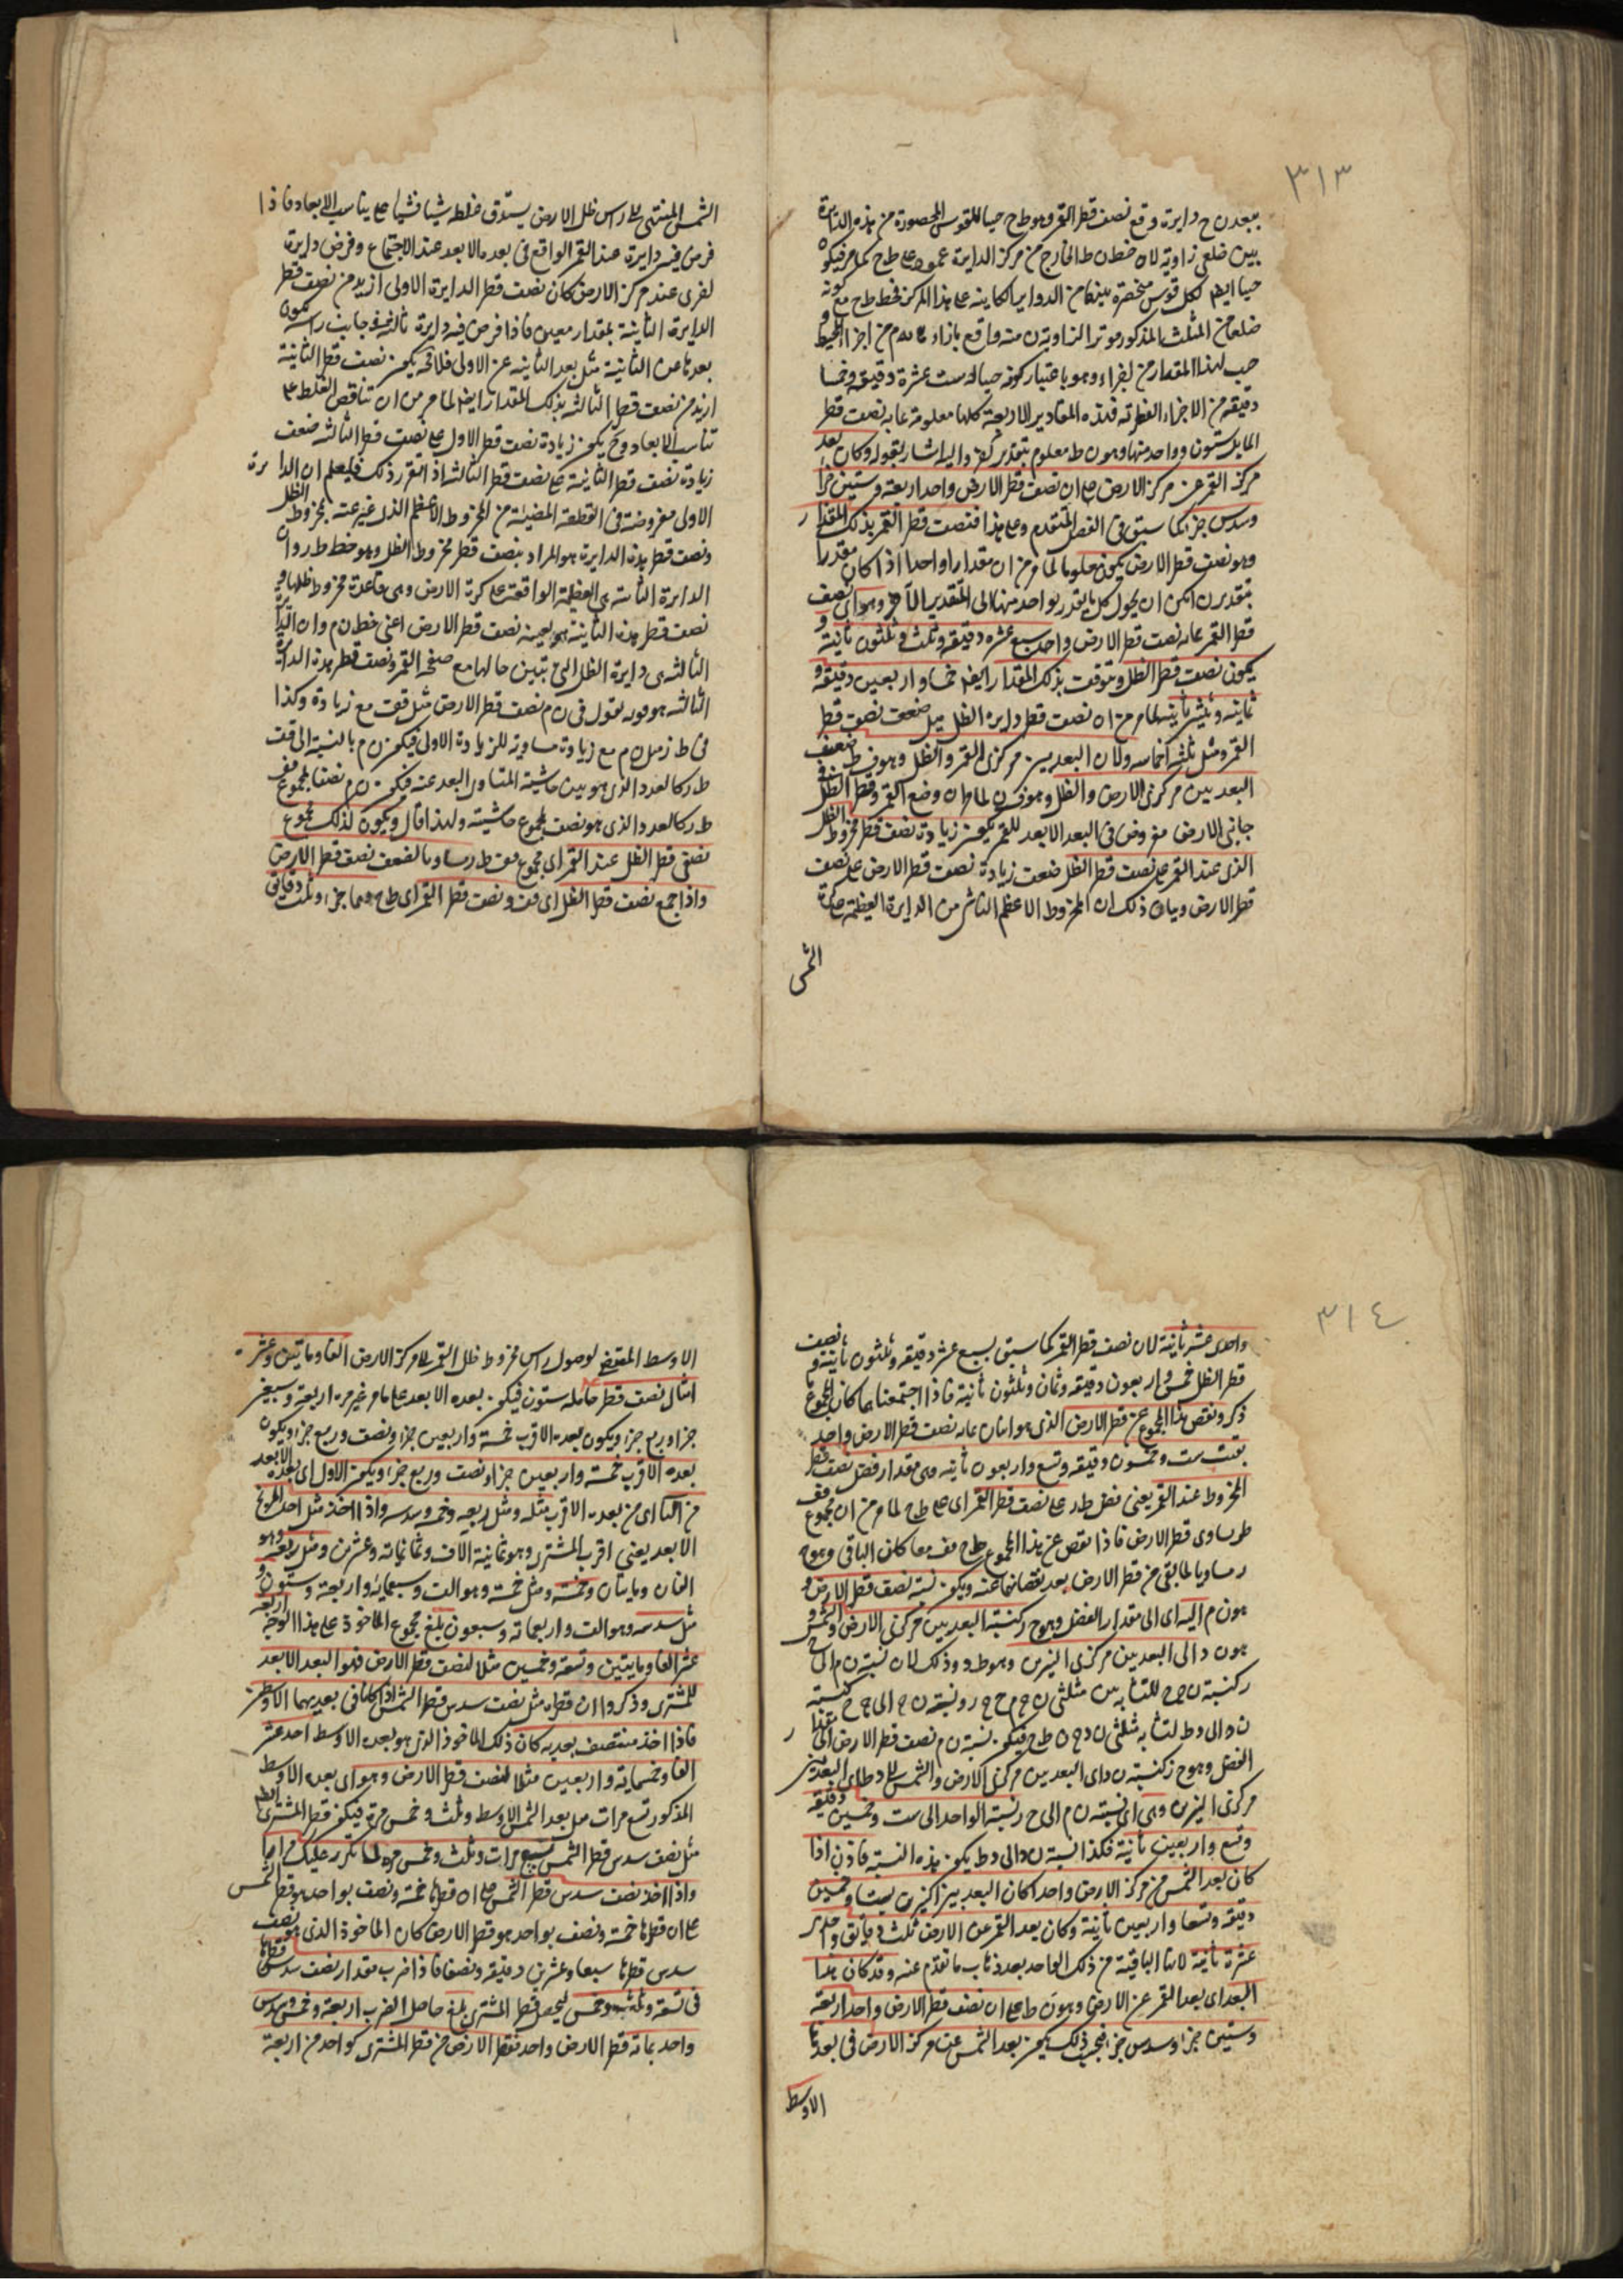 ٣١٣
ببعد ن ح دايرة وقع نصف قطر القمر وهو ط ح حيالا للقوس المحصورة من هذه الدايرة
بين ضلعى زاوية لان خط ن ط الخارج من مركز الدايرة عمود على ط ح كما مر فيكون
حيالا ايضا لكل قوس منحصرة بينهما من الدواير الكاينة على هذا المركز فخط ط ح مع كونه
ضلعا من المثلث المذكور موترا لزاوية ن منه واقع بازاء من اجزاء المحيط
حيالا لهذا المقدار من اجزاء وهو باعتبار كونه حيالا ست عشرة دقيقة وخمسا
دقيقة من الاجزاء فهذه المقادير الاربعة كلها معلومة نصف قطر
المايل ستون وواحد منها وهو ن ط معلوم بتقدير واليه اشار بقوله وكان بعد
مركز القمر عن مركز الارض على ان نصف قطر الارض واحد اربعة وستين جزا
وسدس جز كما سبق فى الفصل المتقدم وعلى هذا فنصف قطر القمر بذلك المقدار
وهو نصف قطر الارض يكون معلوما لما مر من ان مقدارا واحدا اذا كان مقدرا
بتقديرين امكن ان يحول كل ما يقدر بواحد منهما الى التقدير الآخر وهو اى نصف
قطر القمر بما به نصف قطر الارض واحد سبع عشره دقيقة وثلث وثلثون ثانية و
يكون نصف قطر الظل وهو ق ف بذلك المقدار ايضا خمسا واربعين دقيقة و
ثمانيه وثلثين ثانية لما مر من ان نصف قطر دايرة الظل مثل ضعف نصف قطر
القمر ومثل ثلثة اخماسه ولان البعد بين مركزى القمر والظل وهو ق ط ضعف
البعد بين مركزى الارض والظل وهو ق ن لما مر ان وضع القمر وقطر الظل فى
جانبى الارض مفروض فى البعد الابعد للقمر يكون زيادة نصف قطر مخروط الظل
الذى عند القمر على نصف قطر الظل ضعف زيادة نصف قطر الارض على نصف
قطر الارض وبيان ذلك ان المخروط الاعظم الناشى من الدايرة العظيمة على كرة
الشمس
الشمس المنتهى الى راس ظل الارض يستدق غلظه شيئا فشيئا على تناسب الابعاد فاذا
فرض فيه دايرة عند القمر الواقع فى بعده الابعد عند الاجتماع وفرض دايرة
اخرى عند مركز الارض كان نصف قطر الدايرة الاولى ازيد من نصف قطر
الدايرة الثانية بمقدار معين فاذا فرض فيه دايرة ثالثة فى جانب راسه يكون
بعدها عن الثانية مثل بعد الثانية عن الاولى فلا محالة يكون نصف قطر الثانية
ازيد من نصف قطر الثالثة بذلك المقدار ايضا لما مر من ان تناقص الغلظ على
تناسب الابعاد وح يكون زيادة نصف قطر الاول على نصف قطر الثالثه ضعف
زيادة نصف قطر الثانية على نصف قطر الثالثة اذا تقرر ذلك فليعلم ان الدايرة
الاولى مفروضة فى القطعة المضيئة من المخروط الاعظم الذى غير عنه بمخروط الظل
ونصف قطر هذه الدايرة هو المراد بنصف قطر مخروط الظل وهو خط ط ر وان
الدايرة الثانية هى العظيمة الواقعة على كرة الارض وهى قاعدة مخروط ظلها و
نصف قطر هذه الثانية هو بعينه نصف قطر الارض اعنى خط ن م وان الدايرة
الثالثه هى دايرة الظل التى تبين حالها مع صفحة القمر ونصف قطر هذه الدايرة
الثالثه هو ق ف فنقول فى ن م نصف قطر الارض مثل ق ف مع زيادة وكذا
فى ط ر مثل ن م مع زيادة مساوية للزيادة الاولى فيكون ن م بالنسبة الى ق ف
ط ر كالعدد الذى هو بين حاشيتيه المتساوى البعد عنه فيكون ن م نصفا لمجموع ق ف
ط ر كالعدد الذى هو نصف مجموع حاشيتيه ولهذا قال ويكون لذلك مجموع
نصفى قطر الظل عند القمر اى مجموع ق ف ط ر مساويا لضعف نصف قطر الارض
واذا جمع نصف قطر الظل اى ق ف ونصف قطر القمر اى ط ح وهما جزء وثلث دقايق
٣١٤
واحدى عشرة ثانية لان نصف قطر القمر كما سبق سبع عشر دقيقة وثلثون ثانية ونصف
قطر الظل خمس واربعون دقيقه وثمان وثلثون ثانية فاذا اجتمعنا هما كان المجموع ما
ذكر ونقص هذا المجموع عن قطر الارض الذى هو اثنان بما به نصف قطر الارض واحد
بقيت ست وخمسون دقيقه وتسع واربعون ثانيه وهى مقدار فضل نصف قطر
المخروط عند القمر يعنى فضل ط ر على نصف قطر القمر اى على ط ح لما مر من ان مجموع ق ف
ط ر يساوى قطر الارض فاذا نقص عن هذا المجموع ط ح ق ف معا كان الباقى وهو ح
ر مساويا لما بقى من قطر الارض بعد نقصانهما عنه ويكون نسبة نصف قطر الارض و
هو ن م اليه اى الى مقدار الفضل وهو ح ر كنسبة البعد بين مركزى الارض والشمس و
هو ن د الى البعد بين مركزى النيرين وهو ط د وذلك لان نسبة ن م الى ح
ر كنسبة ن ج الى ج ح للتشابه بين مثلثى ن ج م ح ج ر ونسبة ن ج الى ج ح كنسبة
ن د الى د ط لتشابه مثلثى ن د ج ن ط ح فيكون نسبة ن م نصف قطر الارض الى مقدار
الفضل وهو ح ر كنسبة ن د اى البعد بين مركزى الارض والشمس الى د ط اى البعد بين
مركزى النيرين وهى اى نسبة ن م الى ح ر نسبة الواحد الى ست وخمسين دقيقه
وتسع واربعين ثانية فكذا نسبة ن د الى د ط يكون هذه النسبة فاذن اذا
كان بعد الشمس من مركز الارض واحدا كان البعد بين مركزى النيرين ستا وخمسين
دقيقه وتسعا واربعين ثانية وكان بعد القمر عن الارض ثلث دقايق واحدى
عشرة ثانية لانها الباقية من ذلك الواحد بعد ذهاب ما تقدم عنه وقد كان هذا
البعد اى بعد القمر عن الارض وهو ن ط على ان نصف قطر الارض واحد اربعة
وستين جزءا وسدس جزء فبحسب ذلك يكون بعد الشمس عن مركز الارض فى بعدها
الاوسط
الاوسط المقتضى لوصول راس مخروط ظل القمر الى مركز الارض الفا ومائتين وعشر
امثال نصف قطر حامله ستون فيكون بعده الابعد على ما مر غير مره اربعة وسبعين
جزا وربع جزء ويكون بعده الاقرب خمسة واربعين جزءا ونصف وربع جزء ويكون
بعده الاقرب خمسة واربعين جزا ونصف وربع جزء ويكون الاول اى بعده الابعد
من الثانى اى من بعده الاقرب مثله ومثل ربعه وخمسه وسدسه واذا اخذ مثل احد
الابعد يعنى اقرب المشترى وهو ثمانية آلاف وثمانمائة وعشرين ومثل ربعه وهو
الفان ومايتان وخمسة ومثل خمسه وهو الف وسبعمائة واربعة وستون و
مثل سدسه وهو الف واربعمائة وسبعون بلغ مجموع الماخوذة على هذا الوجه اربعة
عشر الفا ومايتين وتسعة وخمسين مثلا لنصف قطر الارض فهو البعد الابعد
للمشترى وذكروا ان قطره مثل نصف سدس قطر الشمس اذا كانا فى بعديهما الاوسطين
فاذا اخذ منتصف بعديه كان ذلك الماخوذ الذى هو بعده الاوسط احد عشر
الفا وخمسمائة واربعين مثلا لنصف قطر الارض وهو اى بعده الاوسط
المذكور تسع مرات مثل بعد الشمس الاوسط وثلث وخمس مرة فيكون قطر المشترى ايضا
مثل نصف سدس قطر الشمس تسع مرات وثلث وخمس مره لما تكرر عليك مرارا
واذا اخذ نصف سدس قطر الشمس على ان قطرها خمسة ونصف بواحد هو قطر الشمس
على ان قطرها خمسة ونصف بواحد هو قطر الارض كان الماخوذ الذى هو نصف
سدس قطرها سبعا وعشرين دقيقه ونصفا فاذا ضرب مقدار نصف سدس قطرها
فى تسعة وثلث وخمس ليحصل قطر المشترى بلغ حاصل الضرب اربعة وخمس وسدس
واحد بما به قطر الارض واحد فقطر الارض من قطر المشترى كواحد من اربعة